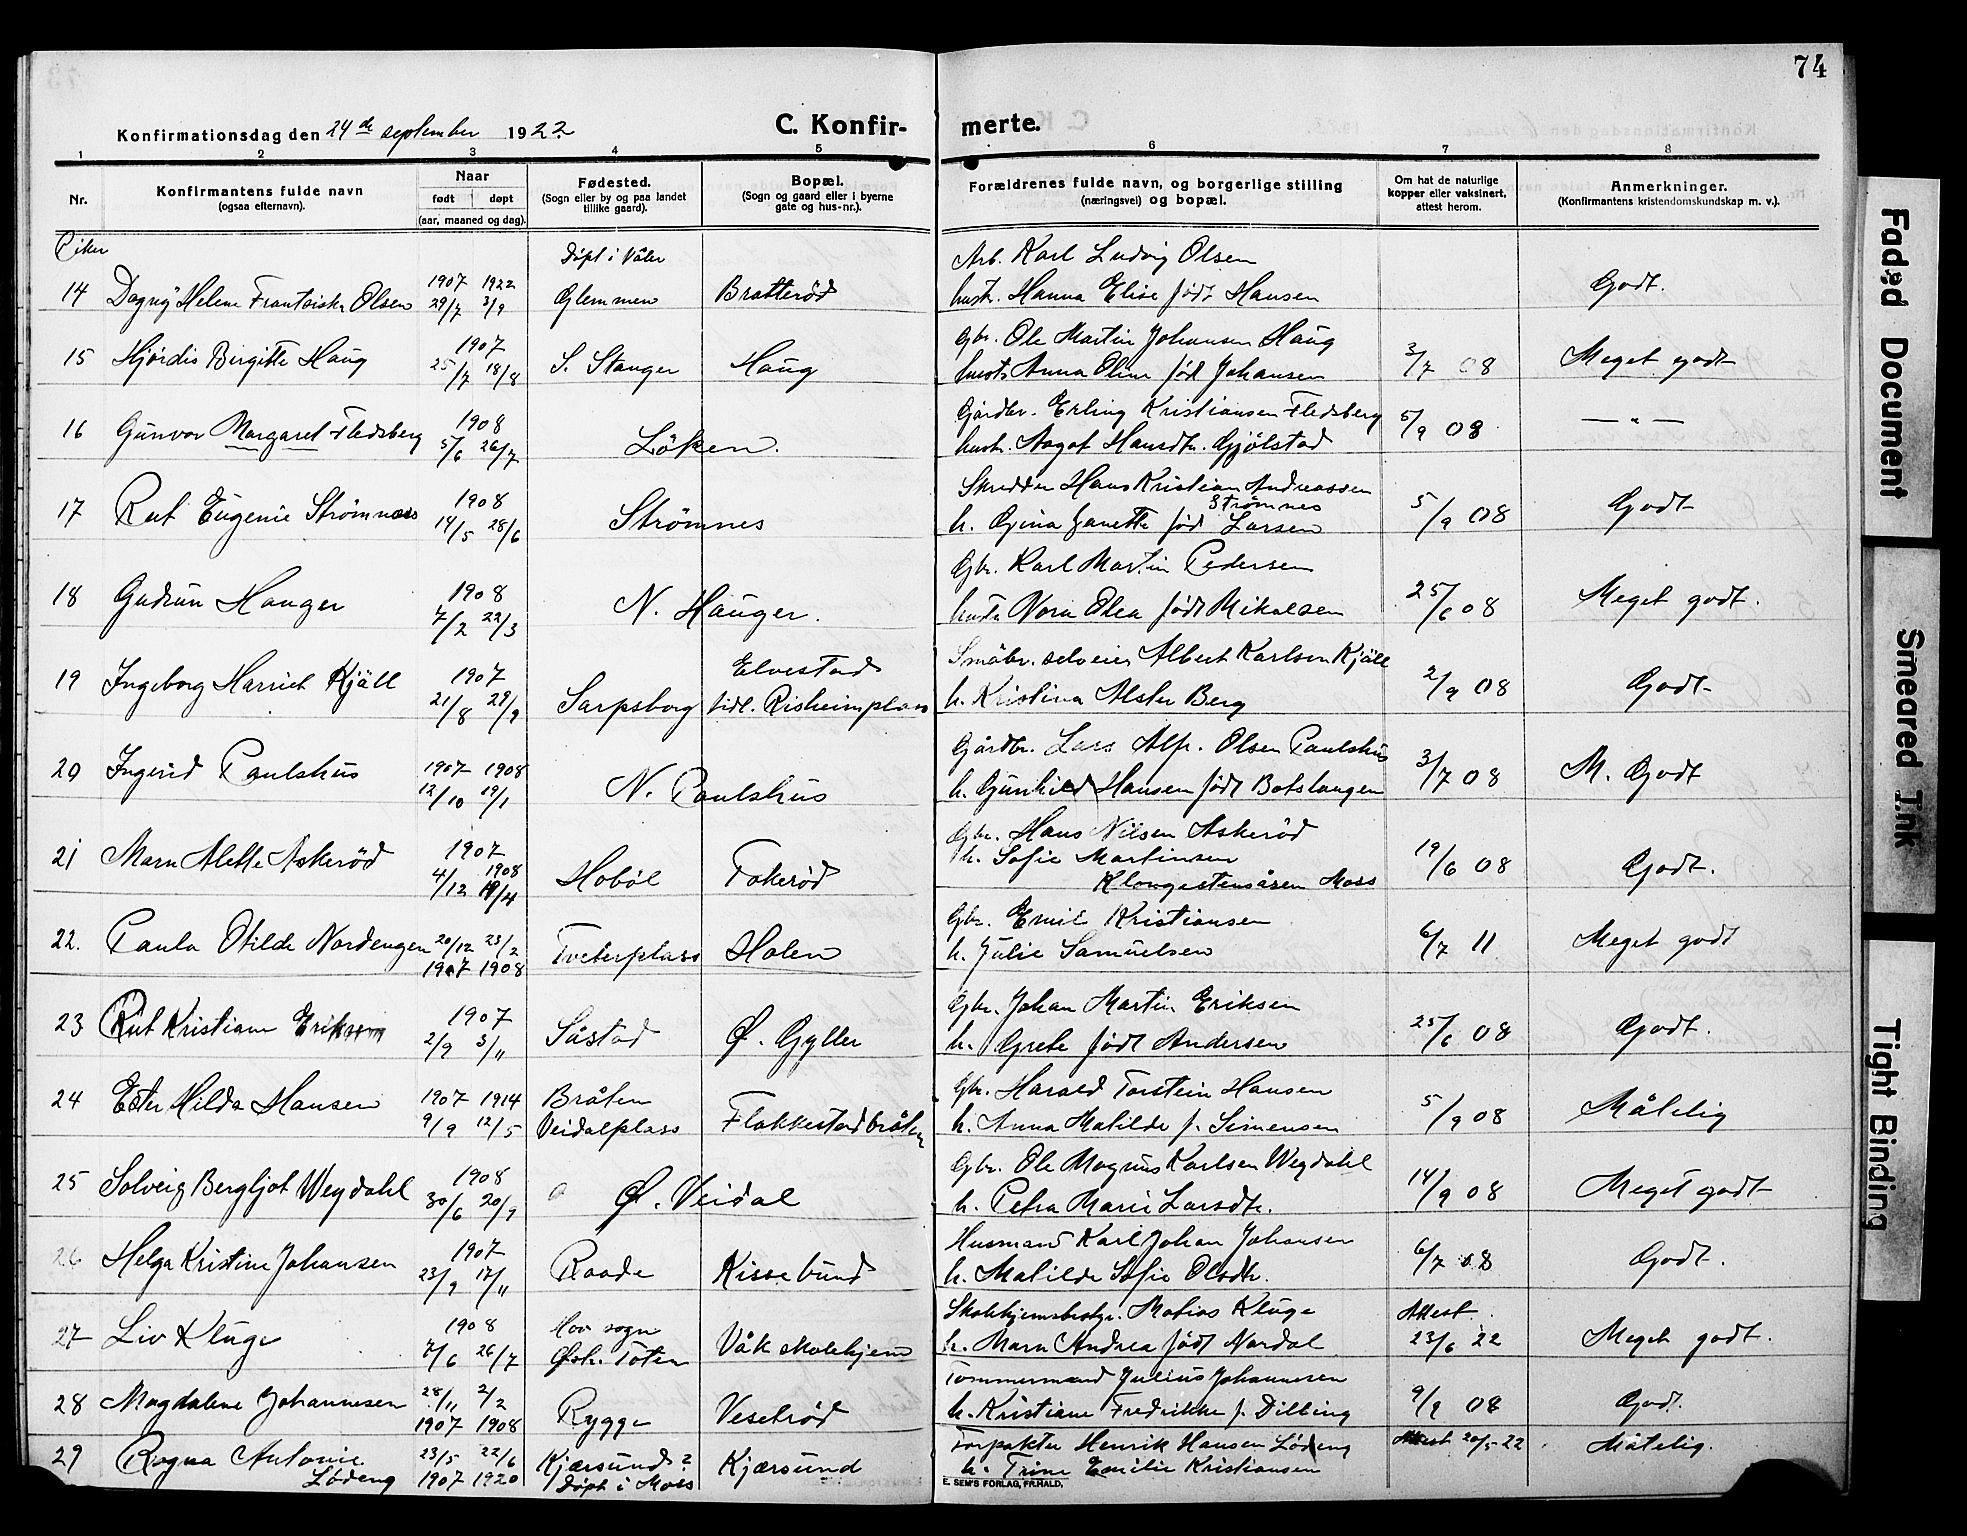 74
Konfirmationsdag den 24de september 1922.
C. Konfir-
merte.
1 2 3 4 5 6 7 8
Nr.
Konfirmantens fulde navn
(ogsaa efternavn).
Naar
født døpt
(aar, maaned og dag).
Fødested.
(Sogn eller by og paa landet
tillike gaard).
Bopæl.
(Sogn og gaard eller i byerne
gate og hus-nr.).
Forældrenes fulde navn, og borgerlige stilling
(næringsvei) og bopæl.
Om hat de naturlige
kopper eller vaksinert,
attest herom.
Anmerkninger.
(Konfirmantens kristendomskundskap m. v.).
Piker
Døpt i Våler
Arb. Karl Ludvig Olsen
1907 1922
14 Dagny Helene Frantziska Olsen 29/7 3/9 Glemmen Bratterød hustr. Hanna Elise født Hansen Godt.
1907 Gbr. Ole Martin Johansen Haug
15 Hjørdis Birgitte Haug 25/7 18/8 S. Stanger Haug hustr. Anna Oline fød Johansen 3/7 08 Meget godt
1908 Gårdbr. Erling Kristiansen Fledsberg
16 Gunvor Margaret Fledsberg 5/6 26/7 Løken. hustr. Aagot Hansdtr. Gjølstad 5/9 08 — " —
1908 Skredder Hans Kristian Andreassen
Strømnes
17 Rut Eugenie Strømnes 14/5 28/6 Strømnes h. Gina Janette født Larsen 5/9 08 Godt
Gbr. Karl Martin Pedersen
1908
18 Gudrun Hauger 7/2 22/3 N. Hauger. hustr. Nora Olea født Mikalsen 25/6 08 Meget godt.
1907 Elvestad Småbr. selveier Albert Karlsen Kjäll
19 Ingeborg Harriet Kjäll 21/8 29/9 Sarpsborg tidl. Risheimplass h. Kristina Alster Berg 2/9 08 Godt
1907 1908 Gårdbr. Lars Alfr. Olsen Paulshus
20 Ingerid Paulshus 12/10 19/1 N. Paulshus h. Gunhild Hansen født Botslangen 3/7 08 M. Godt
1907 Gbr. Hans Nilsen Askerød
1908 h. Sofie Martinsen
21 Marn Alette Askerød 4/12 19/4 Hobøl Fokerød Klongestensåsen Moss 19/6 08 Godt.
Gbr. Emil Kristiansen
22. Paula Otilde Nordengen 20/12 23/2 Tveterplass Holen h. Julie Samuelsen 6/7 11 Meget godt
1907 1908
1907 Gbr. Johan Martin Eriksen
23 Rut Kristiane Eriksen 2/9 3/11 Såstad Ø. Gyller h. Grete født Andersen 25/6 08 Godt.
1907 1914 Bråten Gbr. Harald Torstein Hansen
24 Ester Hilda Hansen 9/9 12/5 Veidalplass Flakkestadbråten h. Anna Matilde f. Simensen 5/9 08 Måtelig
1908 Gbr. Ole Magnus Karlsen Weydahl
25 Solveig Bergljot Weydahl 30/6 20/9 Ø. Veidal h. Petra Marie Larsdtr. 14/9 08 Meget godt
1907 Husmand Karl Johan Johansen
26 Helga Kristine Johansen 23/9 17/11 Raade Kissebund h. Matilde Sofie Olsdtr. 6/7 08 Godt.
1908 Hov sogn Skolehjemsbestyr. Matias Kluge Attest
27 Liv Kluge 7/6 26/7 Østr. Toten Våk skolehjem h. Marn Andrea født Nordal 23/6 22 Meget godt.
Tømmermand Julius Johannesen
28 Magdalene Johannesen 28/11 2/2 Rygge Vesetrød h. Kristiane Fredrikke f. Dilling 9/9 08 Godt.
1907 1908
29 Ragna Antonie 23/5 22/6 Kjærsund? Kjærsund Forpakter Henrik Hansen Lødeng Attest 20/5-22 Måtelig.
Lødeng 1907 1920 Døpt i Moss h. Trine Emilie Kristiansen
E. SEM'S FORLAG, FR.HALD.
Faded Document
Smeared Ink
Tight Binding